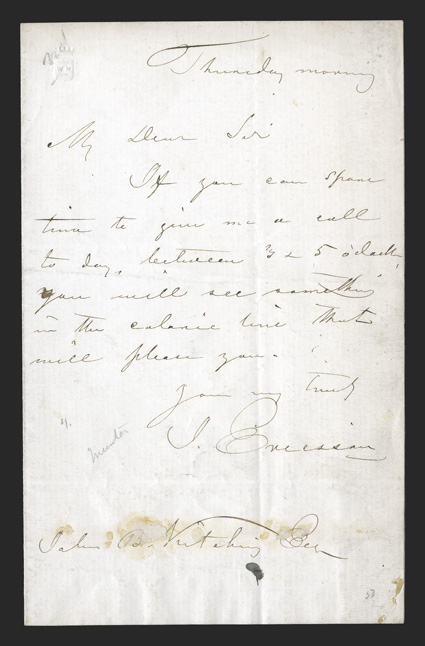 Thursday morning
My Dear Sir
If you can spare
time to give me a call
to day, between 3 & 5 o'clock,
you will see something
in the caloric line that
will please you.
Yours very truly
J. Ericsson
John B. Kitching Esq